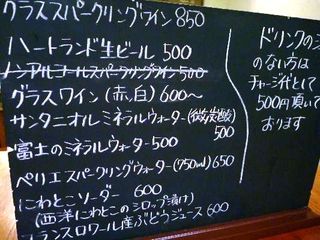 グラススパークリングワイン 850
ハートランド生ビール 500
ノンアルコールスパークリングワイン 500
グラスワイン(赤,白) 600〜
サンタニオル ミネラルウォーター(微炭酸)
500
富士のミネラルウォーター 500
ペリエスパークリングウォーター(750ml) 650
にわとこソーダー 600
(西洋にわとこのシロップ漬け)
フランスロワール産ぶどうジュース 600
ドリンクの
のない方は
チャージ代として
500円頂いて
おります